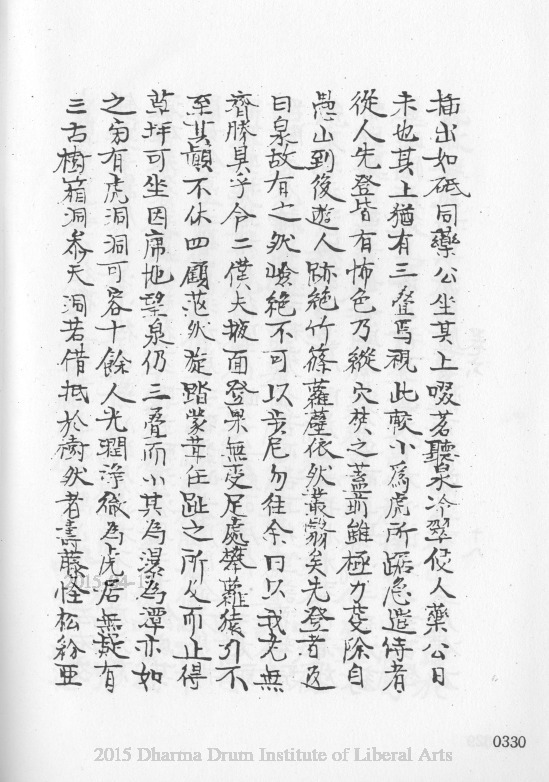 插出如砥同藥公坐其上啜茗聽泉冷翠侵人藥公曰
未也其上猶有三疊焉視此較小為虎所踞急遣侍者
從人先登皆有怖色乃縱火焚之蓋前雖極力芟除自
愚山到後遊人跡絕竹篠蘿薜依然叢翳矣先登者返
曰泉故有之然嶮絕不可以步尼勿往余曰以我老無
濟勝具乎令二僕夫掖面登果無受足處攀蘿猿引不
至其顛不休四顧茫然旋踏蒙茸任趾之所及而止得
草坪可坐因席地望泉仍三疊而小其為瀑為潭亦如
之旁有虎洞洞可容十餘人光潤淨徹為虎居無疑有
三古樹箱洞參天洞若借抵於樹然者壽藤怪松紛亞
0330
2015 Dharma Drum Institute of Liberal Arts